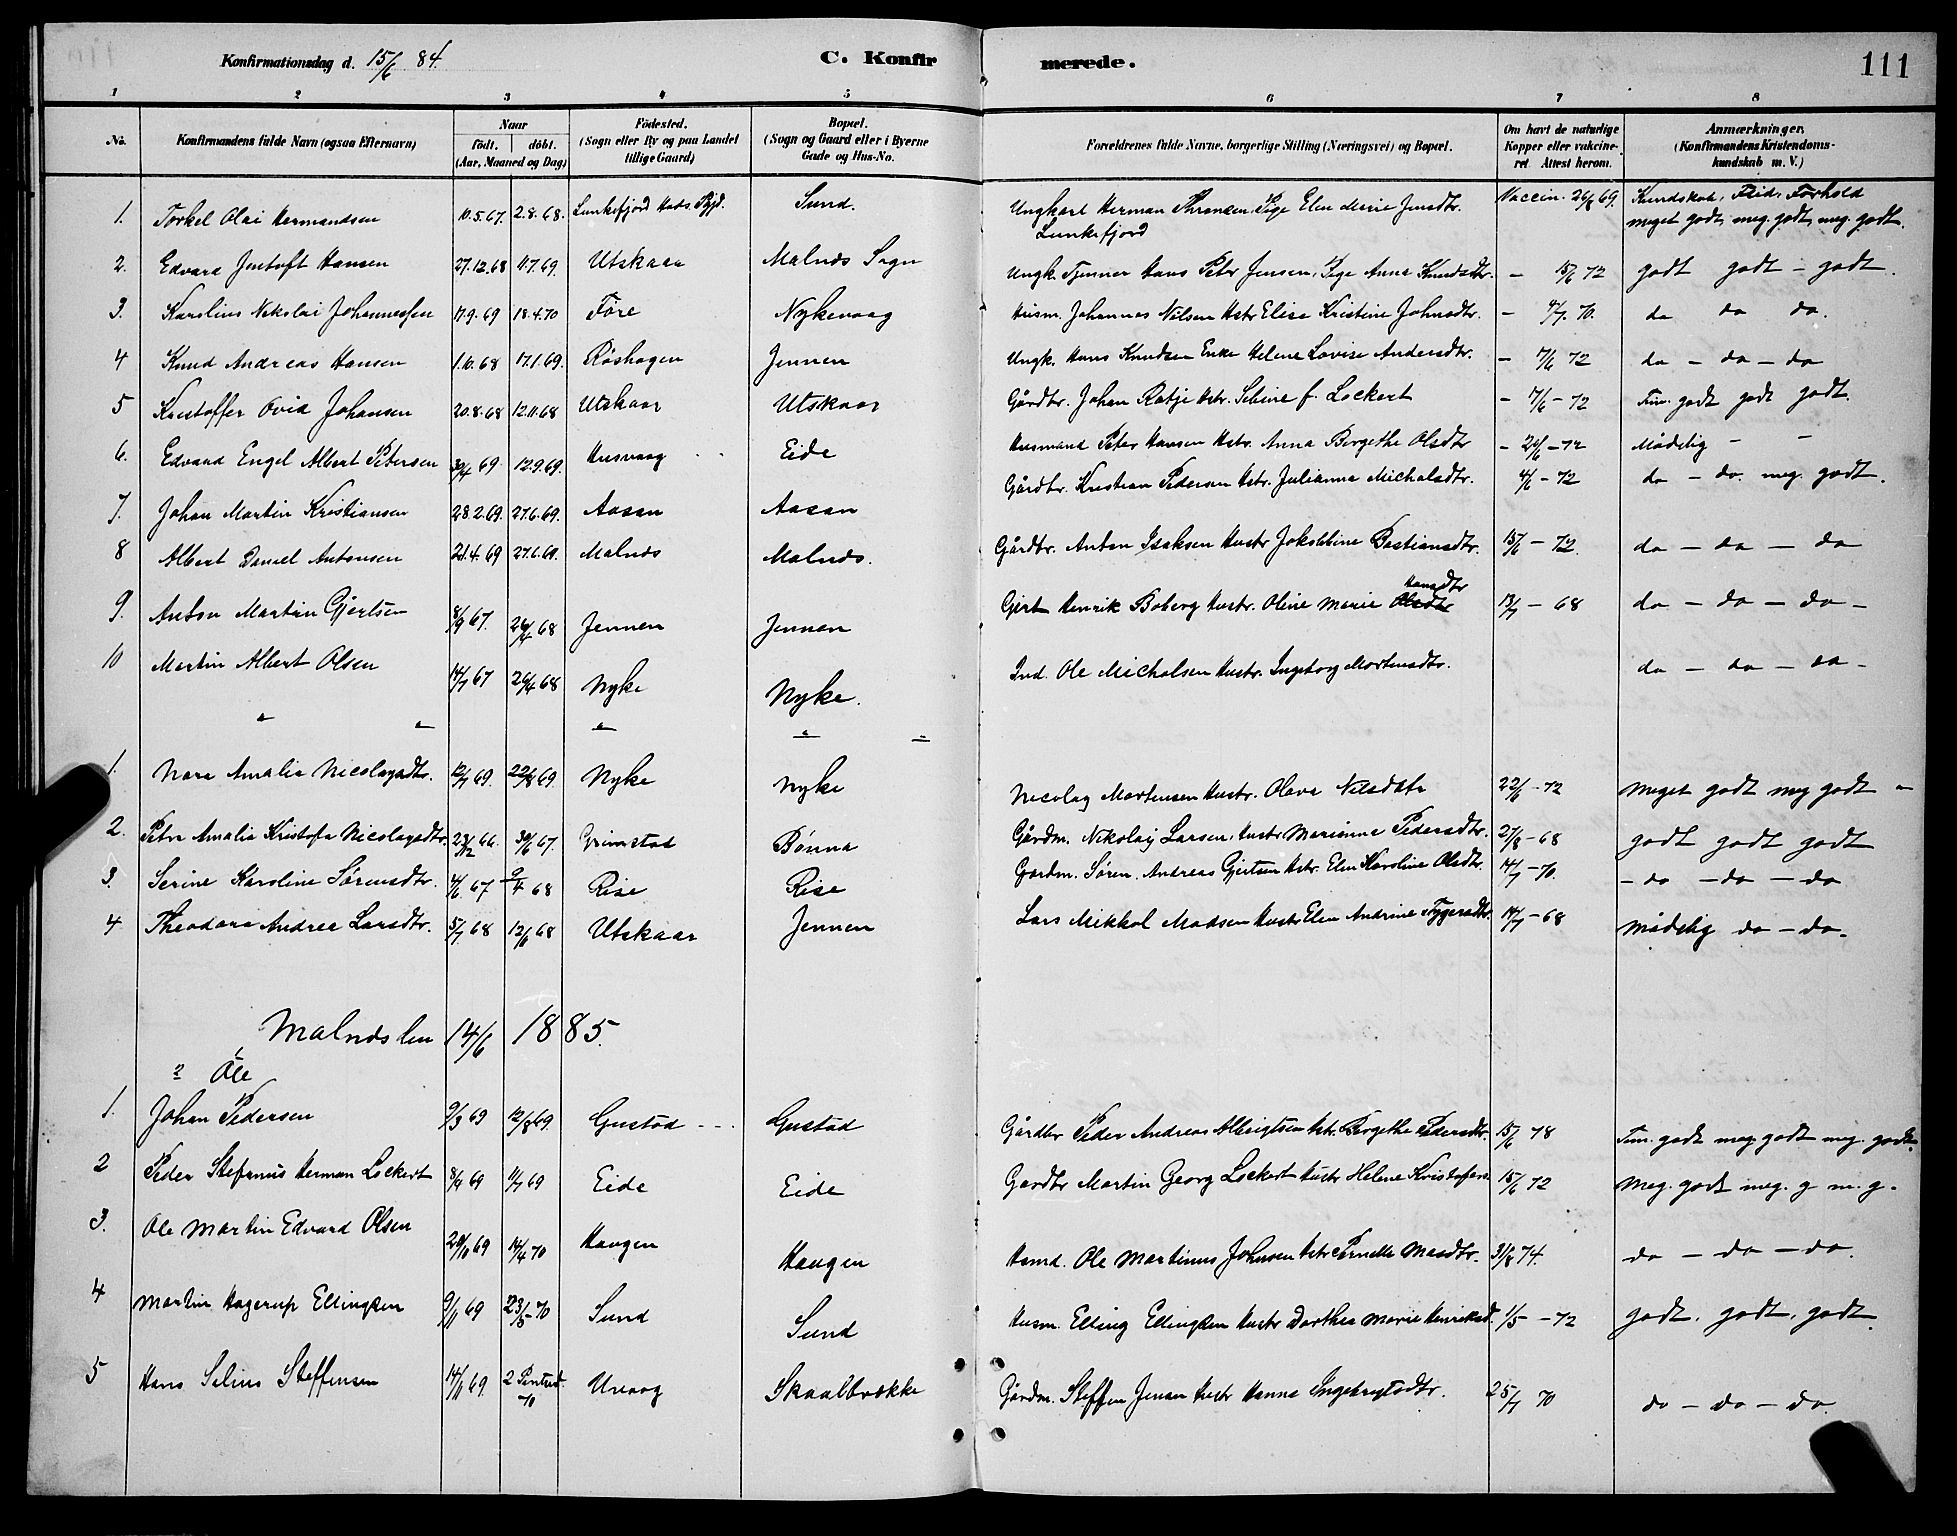 Konfirmationsdag d. 15/6 84. C. Konfirmerede. 111
1 2 3 4 5 6 7 8
No. Konfirmandens fulde Navn (ogsaa Efternavn) Naar født. døbt. (Aar, Maaned og Dag) Fødested. (Sogn eller By og paa Landet tillige Gaard) Bopæl. (Sogn og Gaard eller i Byerne Gade og Hus-No. Forældrenes fulde Navne, borgerlige Stilling (Næringsvei) og Bopæl. Om havt de naturlige Kopper eller vakcineret. Attest herom. Anmærkninger. (Konfirmandens Kristendomskundskab m. V.)
1. Torkel Olai Hermandsen 10.5.67. 2.8.68. Lunkefjord Hads Sund. Ungkarl Herman Pige Elen Jensdtr. Lunkefjord Vaccin. 26/8 69. Kundskab, Flid, Forhold meget godt, meg. godt, meg. godt.
2. Edvard Jentoft Hansen 27.12.68 11.7.69. Utskaar Malnæs Sogn Ungk. Tjener Hans Peter Jensen, Pige Anna Knudsdtr. - 15/6 72 godt godt - godt.
3. Karolius Nikolai Johannessen 17.9.69 18.4.70 Føre Nykevaag Husm. Johannes Nilsen Hstr Elise Kristine Johnsdtr. - 9/7. 70. do do do.
4 Knud Andreas Hansen 1.10.68 17.1.69. Røshagen Jennen Ungk. Hans Knudsen Enke Helene Lovise Andersdtr. - 7/6 72 do - do - do
5 Kristoffer Ovid Johansen 20.8.68 12.11.68 Utskaar Utskaar Gårdbr. Johan Ratje Hstr. Seline f. Lockert - 7/6 - 72 Tem. godt godt godt.
6. Edvard Engel Albert Petersen 30/4 69 12.9.69. Husvaag Eide Husmand Peter Hansen Hstr. Anna Bergethe Olsdtr - 20/6 - 72 Mådelig - -
7. Johan Martin Kristiansen 28.2.69. 27.6.69. Aasan Aasan Gårdbr. Kristian Pedersen Hstr. Julianna Michalsdtr. 4/6 - 72 do - do. meg. godt.
8 Albert Daniel Antonsen 21.4.69 27.6.69. Malnæs Malnæs. Gårdbr. Anton Isaksen Hustr Jokobbine Bastiansdtr. 15/6 - 72. do - do - do
9. Anton Martin Gjertsen 8/9 67. 26/4 68 Jennen Jennen Gjert Henrik Boberg Hustr. Oline Marie Olsdtr Hansdtr 13/7 - 68 do - do - do -
10 Martin Albert Olsen 14/7 67 26/4 68 Nyke Nyke. Ind. Ole Micholsen Hustr. Ingeborg Mortensdtr. do - do - do -
" " " " "
1. Nora Amalia Nicolaysdtr. 12/7 69. 22/8 69 Nyke Nyke Nicolay Mortensen Hustr. Olava Nilsdatr 22/6 - 72 Meget godt meg godt -
2. Petra Amalia Kristofa Nicolaysdtr. 23/12 66. 30/6 67. Grimstad Bønna Gårdm. Nikolaij Larsen, Hustr Marianna Pedersdtr. 27/8 - 68 godt godt godt
3. Serine Karoline Sørensdtr. 4/6 67 9/4 68 Rise Rise Gårdm. Søren Andreas Gjertsen Hstr. Elen Karoline Olsdtr. 14/7 - 70. - do - do - do
4 Theodora Andrea Larsdtr. 5/7 68 12/6 68 Utskaar Jennen Lars Mikkol Madsen Hustr Elen Andrine Tygersdtr. 14/7 - 68 mådelig do - do.
Malnæs den 14/6 1885.
Ole
1. Johan Pedersen 9/3 69 12/8 69. Gustad Gustad Gårdbr Peder Andreas Albrigtsen Hstr. Bergethe Pedersdtr. 15/6 78 Tem. godt meg. godt meg. godt.
2 Peder Stefanus Herman Lockert 8/4 69 11/7 69 Eide Eide Gårdbr Martin Georg Lockert Hustr Helene Kristofersd 15/6 72 Meg. godt meg. g m. g.
3. Ole Martin Edvard Olsen 20/11 69 14/4 70 Haugen Haugen Hsmd. Ole Martinus Johnsen Hstr Pernelle Masdtr. 31/8 74. do - do - do.
4 Martin Hagerup Ellingsen 9/11 69 23/5 70 Sund Sund Husm. Elling Ellingsen Hustr Dorthea Marie Henriksd. 1/5 - 72 godt, godt, godt
5 Hans Selius Steffensen 14/11 69. 2 70 Uvaag Skaalbrække Gårdm. Steffen Jensen Hustr Hanna Ingebrigtsdtr. 25/7 70 do - do - do.